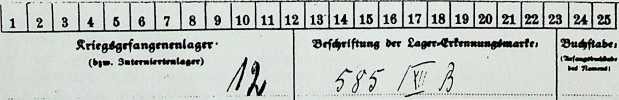 1 2 3 4 5 6 7 8 9 10 11 12 13 14 15 16 17 18 19 20 21 22 23 24 25
Kriegsgefangenenlager: Beschriftung der Lager-Erkennungsmarke: Buchstabe:
(bzw. Interniertenlager) (Anfangsbuchstabe
des Namens)
12 585 / XII B